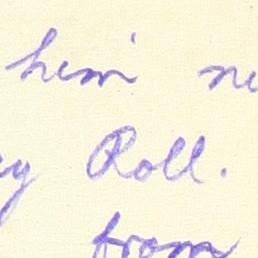 him
Roll.
from